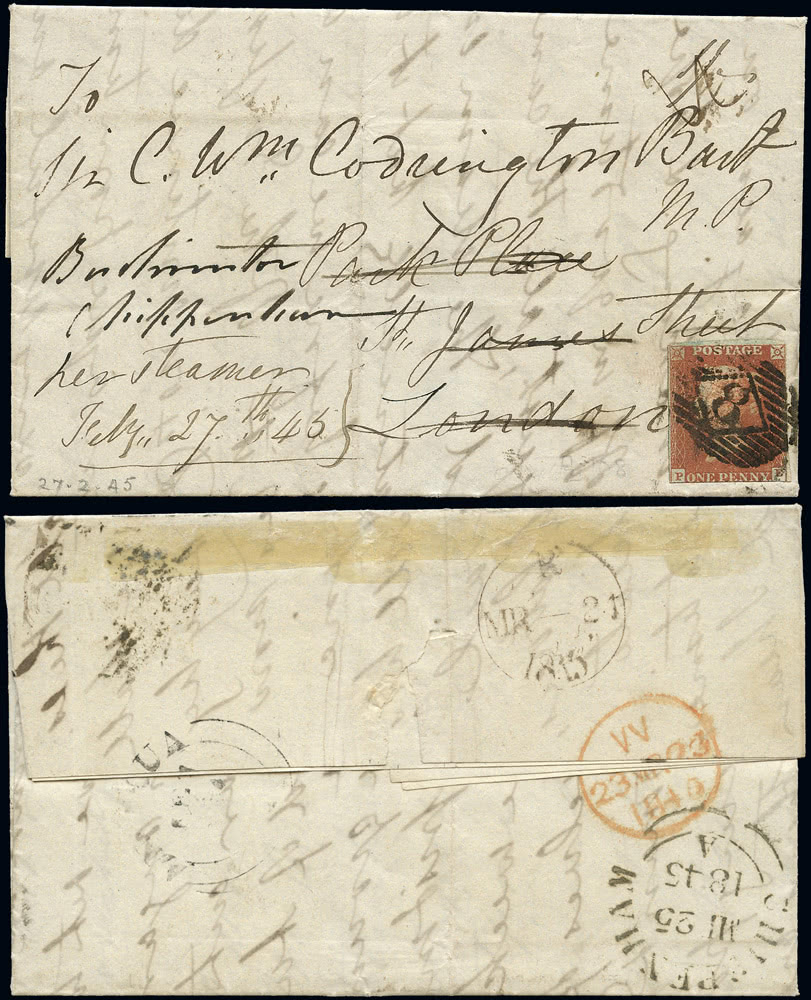 To
Sir C. Wm. Codrington Bart
M.P.
Park Place
Chippenham
St. James Street
per steamer
Feby. 27.th 45
London
27.2.45
POSTAGE
8
P ONE PENNY E
MR 24
1845
W
23 MR 23
1845
UA
CHIPPENHAM
MR 25
1845
A